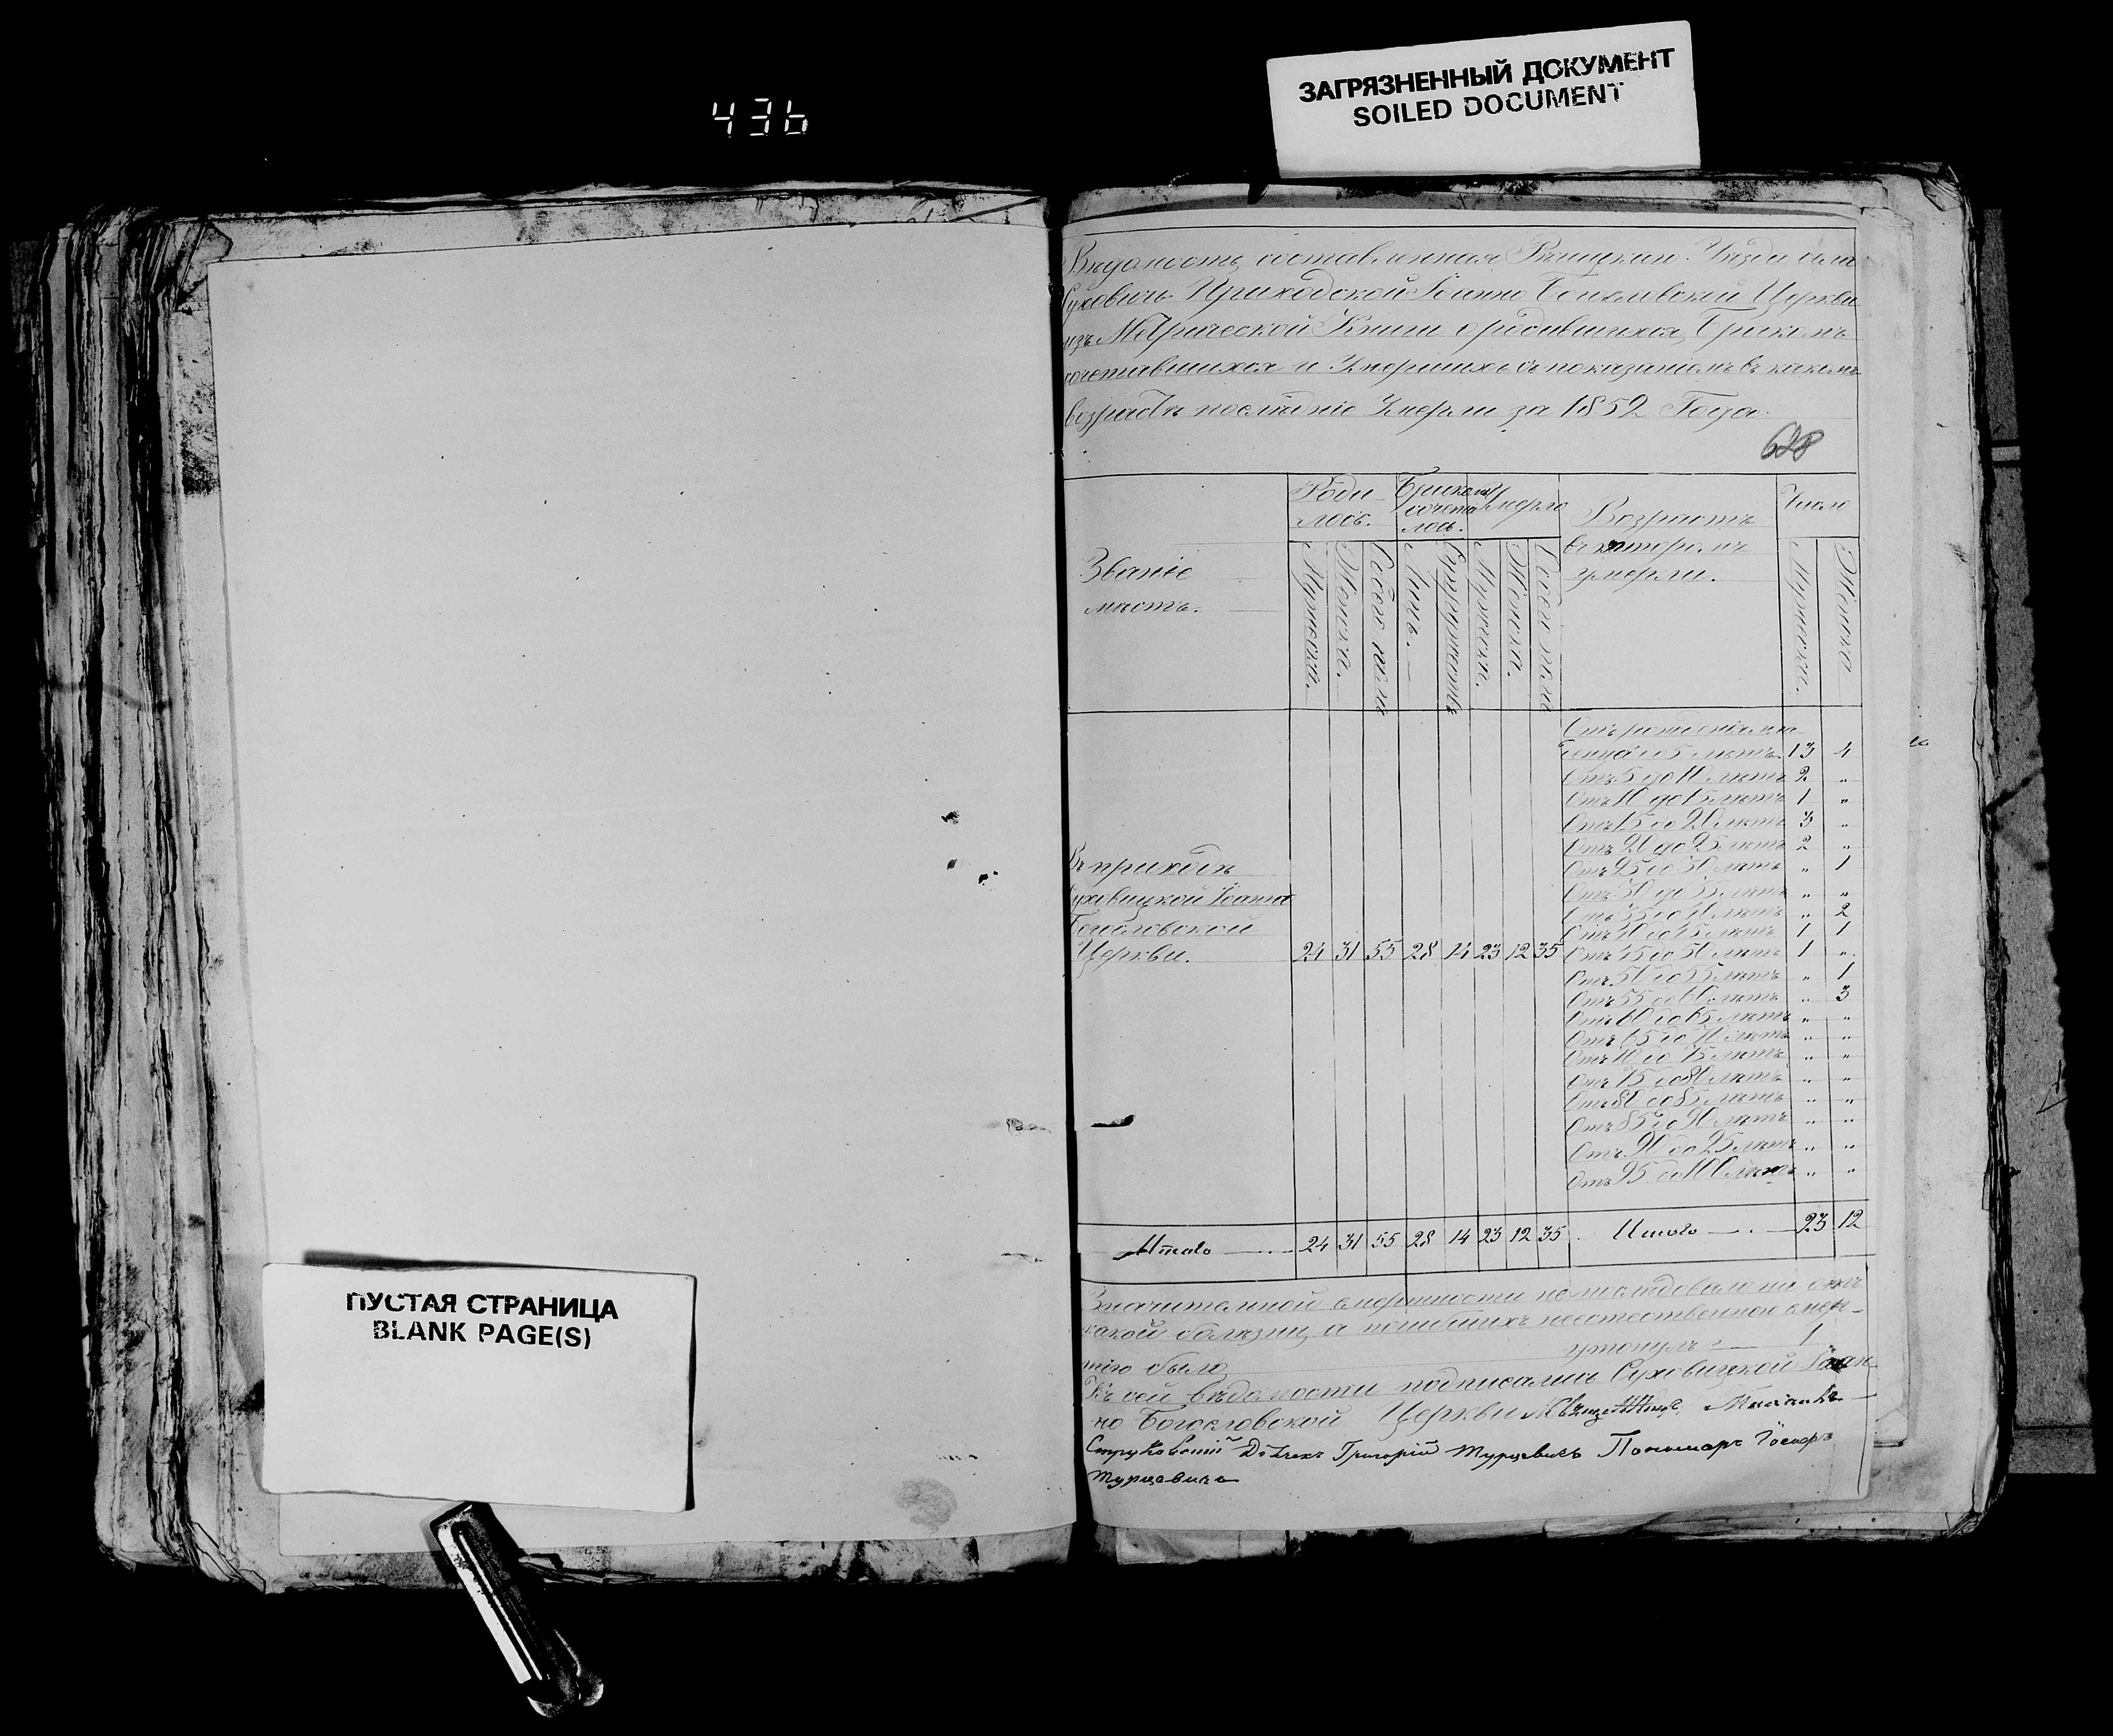 436
ЗАГРЯЗНЕННЫЙ ДОКУМЕНТ
SOILED DOCUMENT
Вѣдомость, составленная Рѣчицкаго Уѣзда села
Суховичъ Приходской Іоанно Богословской Церкви
изъ Метрической Книги о родившихся, Бракомъ
сочетавшихся и Умершихъ съ показаніемъ въ какомъ
возрастѣ послѣдніе Умерли за 1852 Годъ.
628
Званіе мѣстъ.
Роди лось.
Бракомъ сочета лось.
Умерло
Возрастъ въ которомъ умерли.
Число
Мужеска. Женска. Обоего пола Лицъ. Супружествъ Мужеска. Женска. Обоего пола Мужеска. Женска
Отъ рожденія мла
денца до 5 лѣтъ. 13 4
Отъ 5 до 10 лѣтъ 2 „
Отъ 10 до 15 лѣтъ 1 „
Отъ 15 до 20 лѣтъ 3 „
Отъ 20 до 25 лѣтъ 2 „
Отъ 25 до 30 лѣтъ „ 1
Отъ 30 до 35 лѣтъ „ „
Отъ 35 до 40 лѣтъ „ 2
Отъ 40 до 45 лѣтъ 1 1
Отъ 45 до 50 лѣтъ 1 „
Отъ 50 до 55 лѣтъ „ 1
Отъ 55 до 60 лѣтъ „ 3
Отъ 60 до 65 лѣтъ „ „
Отъ 65 до 70 лѣтъ „ „
Отъ 70 до 75 лѣтъ „ „
Отъ 75 до 80 лѣтъ „ „
Отъ 80 до 85 лѣтъ „ „
Отъ 85 до 90 лѣтъ „ „
Отъ 90 до 95 лѣтъ „ „
Отъ 95 до 100 лѣтъ „ „
Въ приходѣ
Суховицкой Іоанно
Богословской
Церкви. 24 31 55 28 14 23 12 35
Итого 24 31 55 28 14 23 12 35 Итого 23 12
Значительной смертности не
какой болѣзни, а погибшихъ неестественною смер-
тію было утонулъ 1
Къ сей вѣдомости подписались Суховицкой Іоан
но Богословской Церкви
Дьячекъ Григорій Турцевичъ Пономарь Іосифъ
Турцевичъ
ПУСТАЯ СТРАНИЦА
BLANK PAGE(S)